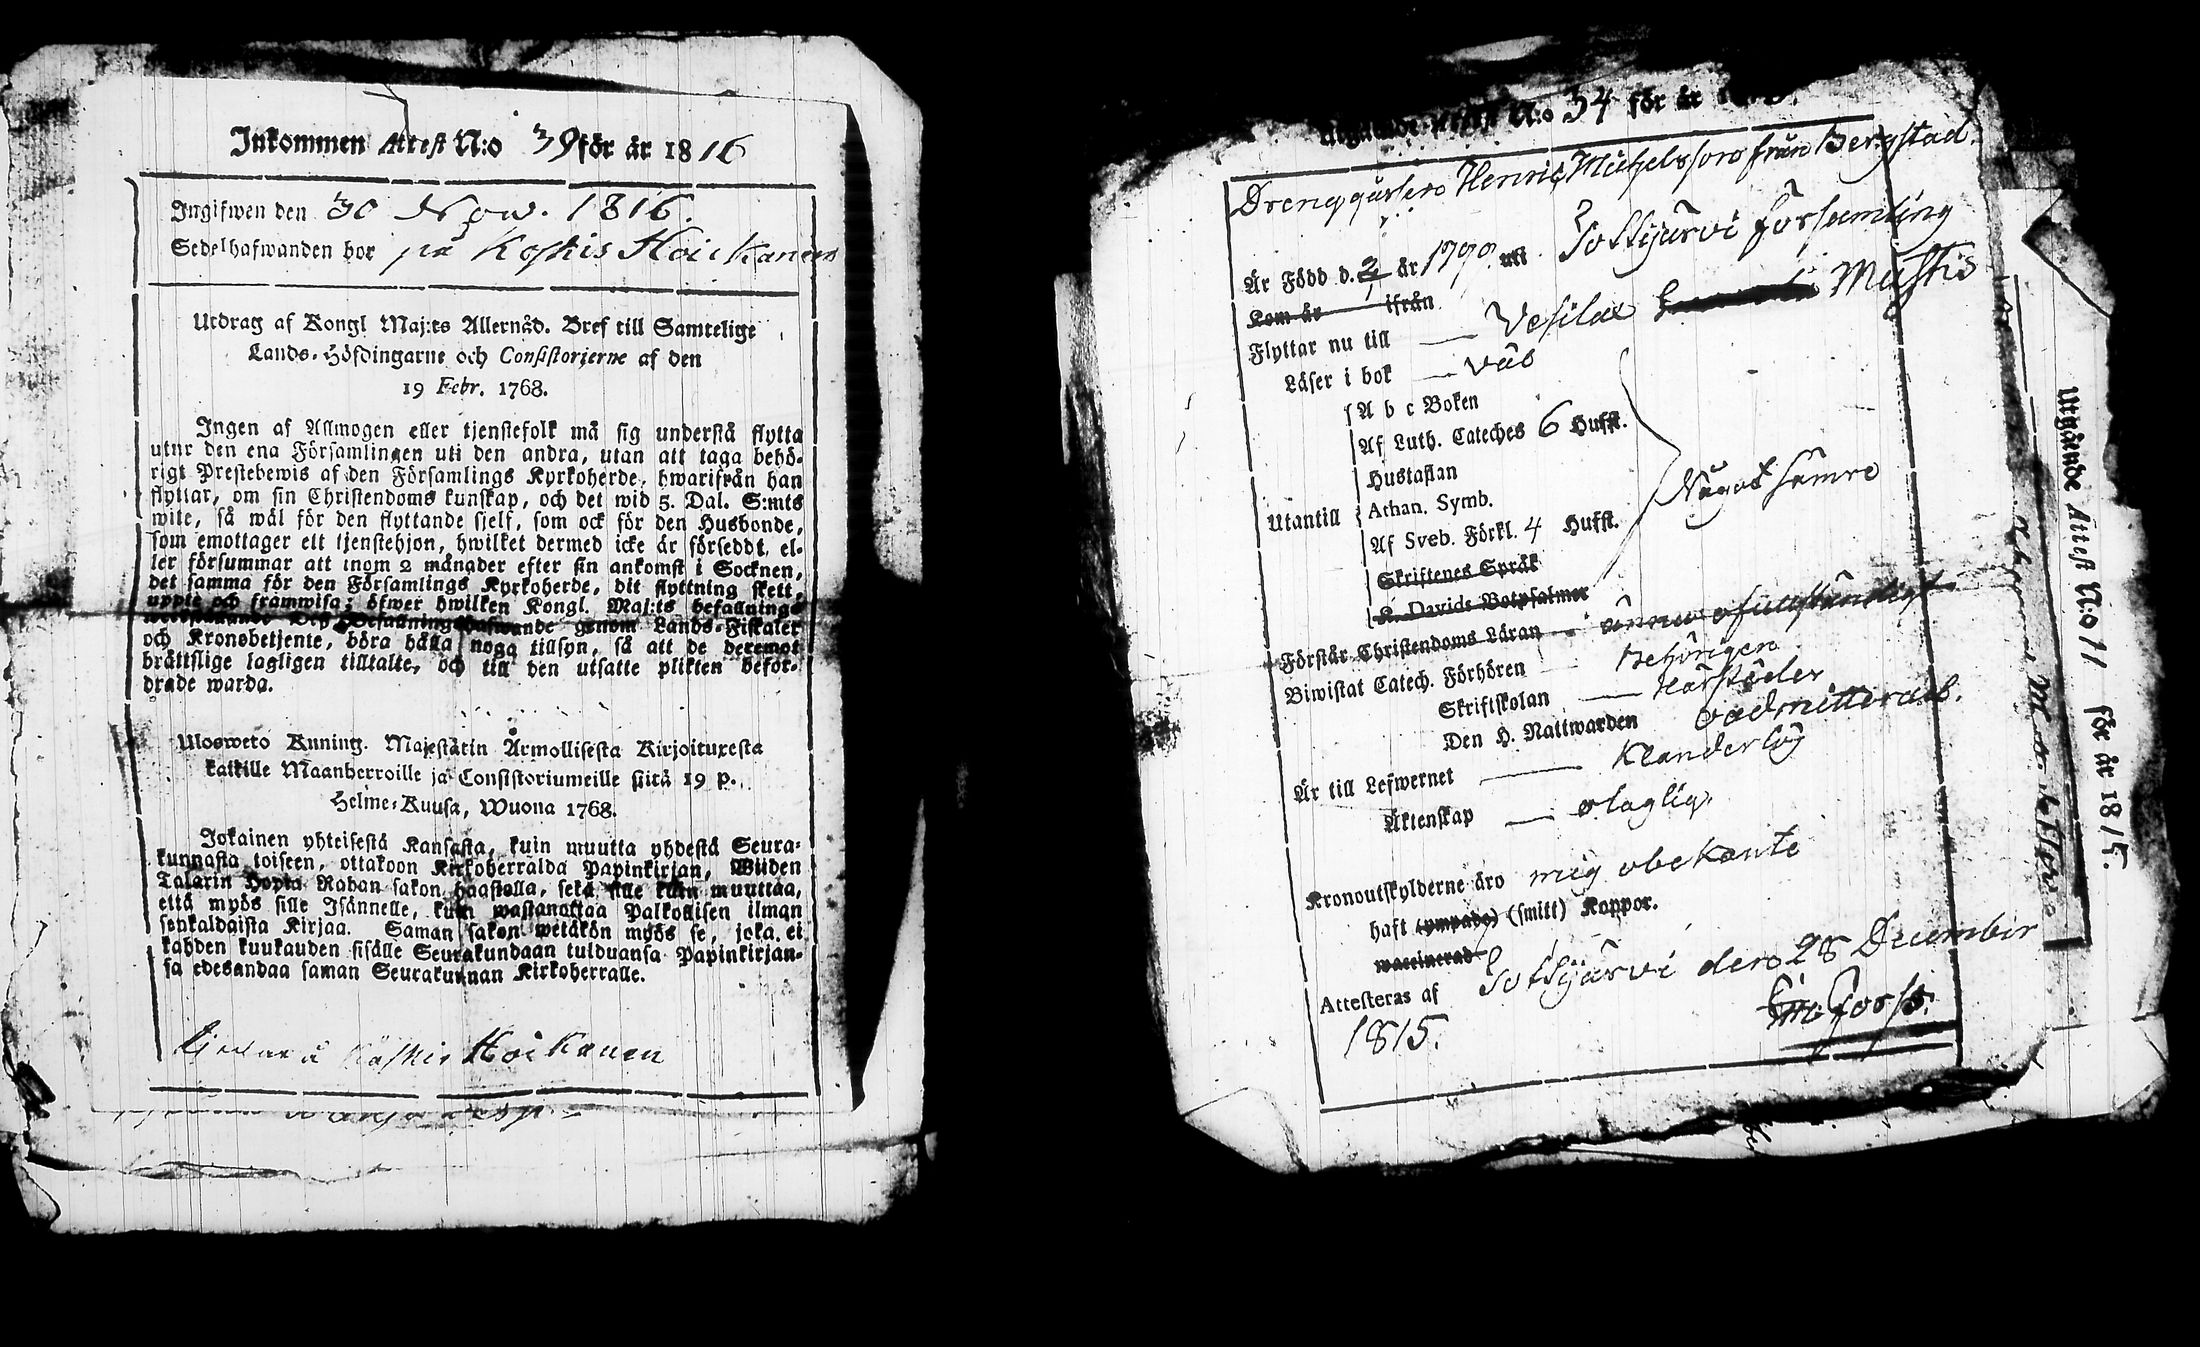 Inkommen Attest N:o 39 för år 1816
Ingifwen den 30 Now. 1816.
Sedelhafwanden bor på Koskis Hoickanen
Utdrag af Kongl Maj:ts Allernåd. Bref till Samtelige
Lands-Höfdingarne och Consistorierne af den
19 Febr. 1768.
Ingen af Allmogen eller tjenstefolk må sig understå flytta
utur den ena Församlingen uti den andra, utan att taga behö-
rigt Prestebewis af den Församlings Kyrkoherde, hwarifrån han
flyttar, om sin Christendoms kunskap, och det wid 5. Dal. S:mts
wite, så wäl för den flyttande sjelf, som ock för den Husbonde,
som emottager ett tjenstehjon, hwilket dermed icke är förseddt, el-
ler försummar att inom 2 månader efter sin ankomst i Socknen,
det samma för den Församlings Kyrkoherde, dit flyttning skett,
uppte och framwisa; öfwer hwilken Kongl. Maj:ts befallnings
Befallningshafwande genom Lands-Fiskaler
och Kronobetjente, böra hålla noga tillsyn, så att de deremot
bråttslige lagligen tilltalte, och till den utsatte plikten befor-
drade warda.
Ulosweto Kuning. Majestätin Armollisesta Kirjoituxesta
kaikille Maanherroille ja Consistoriumeille siitä 19 p.
Helme-Kuusa, Wuona 1768.
Jokainen yhteisestä Kansasta, kuin muutta yhdestä Seura-
kunnasta toiseen, ottakoon Kirkoherralda Papinkirjan, Wiiden
Talarin Hopia Rahan sakon haastolla, sekä sille kuin muuttaa,
että myös sille Isännelle, kuin wastanottaa Palkollisen ilman
senkaldaista Kirjaa. Saman sakon wetäkön myös se, joka ei
kahden kuukauden sisälle Seurakundaan tulduansa Papinkirjan-
sa edesandaa saman Seurakunnan Kirkoherralle.
Koskis Hoikanen
Attest N:o 34 för år
Drenggåssen Henric Michelsson från Bergstad.
Är Född d. 2 år 1790 uti Tottijärvi församling
Kom år ifrån
Flyttar nu till Vesilax Mustis
Läser i bok väl
A b c Boken
Af Luth. Cateches 6 Hufst.
Hustaflan
Utantill Athan. Symb. Något sämre
Af Sveb. Förkl. 4 Hufst.
Skriftenes Språk
K. Davids Botpsalmer
Förstår Christendoms Läran ännu ofullständligt
Biwistat Catech. Förhören Behörigen
Skriftskolan
Den H. Nattwarden admitterad.
Är till Lefwernet Klanderlös
Äktenskap olaglig.
Kronoutskylderne äro mig obekante
haft (ympade) (smitt) Koppor.
waccinerad
Attesteras af Tottijärvi den 28 December
1815.
Utgående Attest N:o 11 för år 1815.